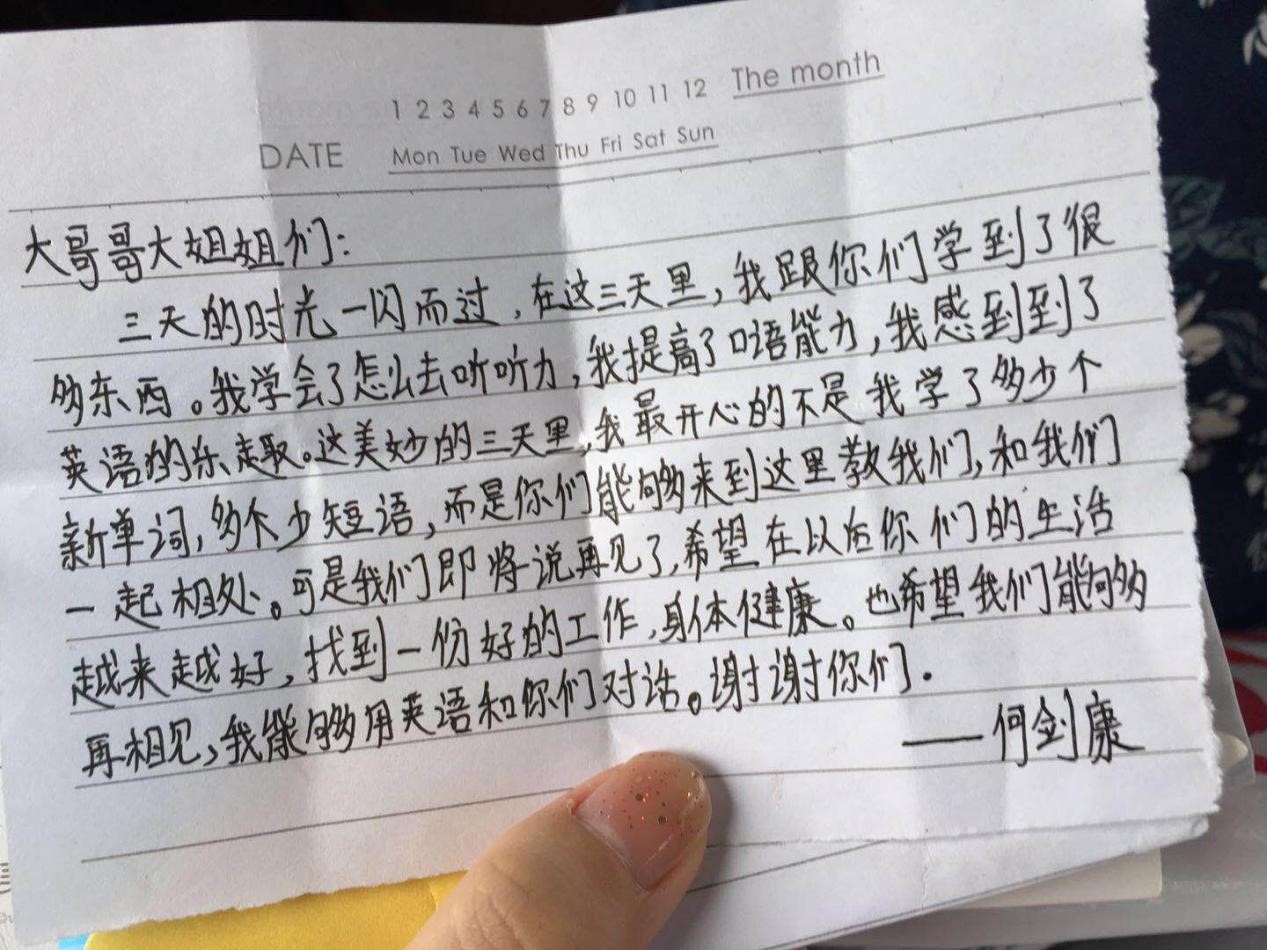 1 2 3 4 5 6 7 8 9 10 11 12 The month
DATE Mon Tue Wed Thu Fri Sat Sun
大哥哥大姐姐们:
三天的时光一闪而过,在这三天里,我跟你们学到了很
多东西。我学会了怎么去听听力,我提高了口语能力,我感到到了
英语的乐趣。这美妙的三天里,我最开心的不是我学了多少个
新单词,多个少短语,而是你们能够来到这里教我们,和我们
一起相处。可是我们即将说再见了,希望在以后你们的生活
越来越好,找到一份好的工作,身体健康。也希望我们能够
再相见,我能够用英语和你们对话。谢谢你们.
——何剑康